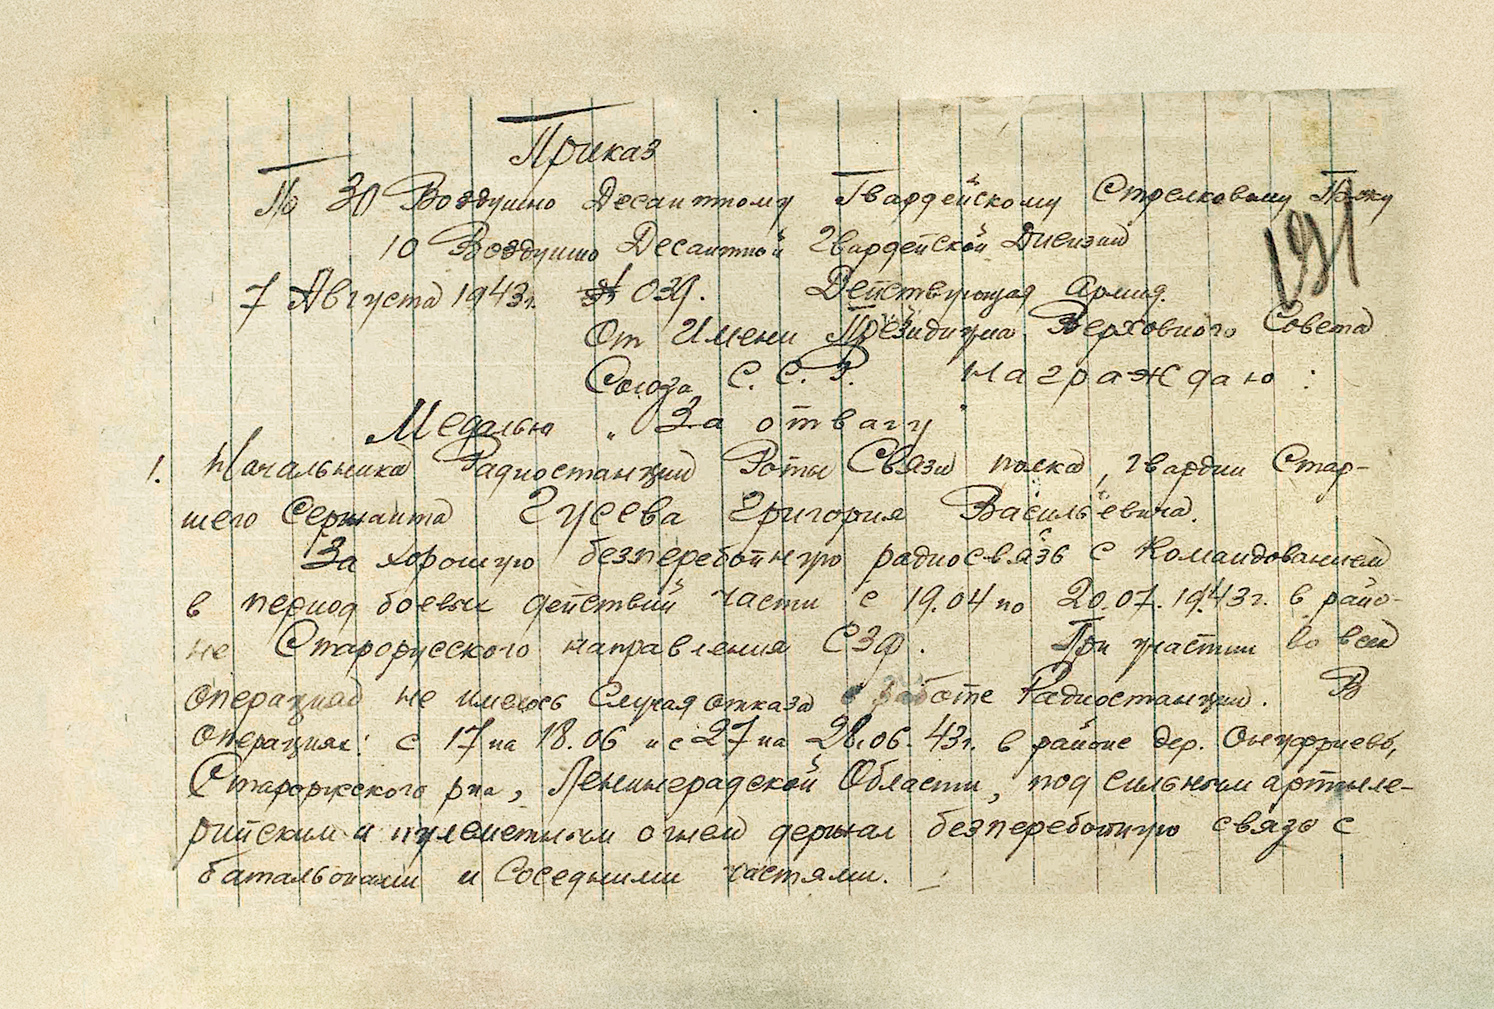 Приказ
По 30 Воздушно Десантному Гвардейскому Стрелковому Полку
10 Воздушно Десантной Гвардейской Дивизии
191
7 Августа 1943г. № 039. Действующая Армия.
От Имени Президиума Верховного Совета
Союза С.С.Р. награждаю:
Медалью „За отвагу"
1. Начальника Радиостанции Роты Связи полка, гвардии Стар-
шего Сержанта Гусева Григория Васильевича.
За хорошую безперебойную радиосвязь с Командованием
в период боевых действий части с 19.04 по 20.07.1943г. в райо-
не Старорусского направления СЗФ. При участии во всей
операций не имелось Случая отказа в работе Радиостанции. В
операциях: с 17 на 18.06 и с 27 на 28.06.43г. в районе дер. Онуфриево,
Старорусского р-на, Ленинградской Области, под сильным артилле-
рийским и пулеметным огнем держал безперебойную связь с
батальонами и Соседними частями.